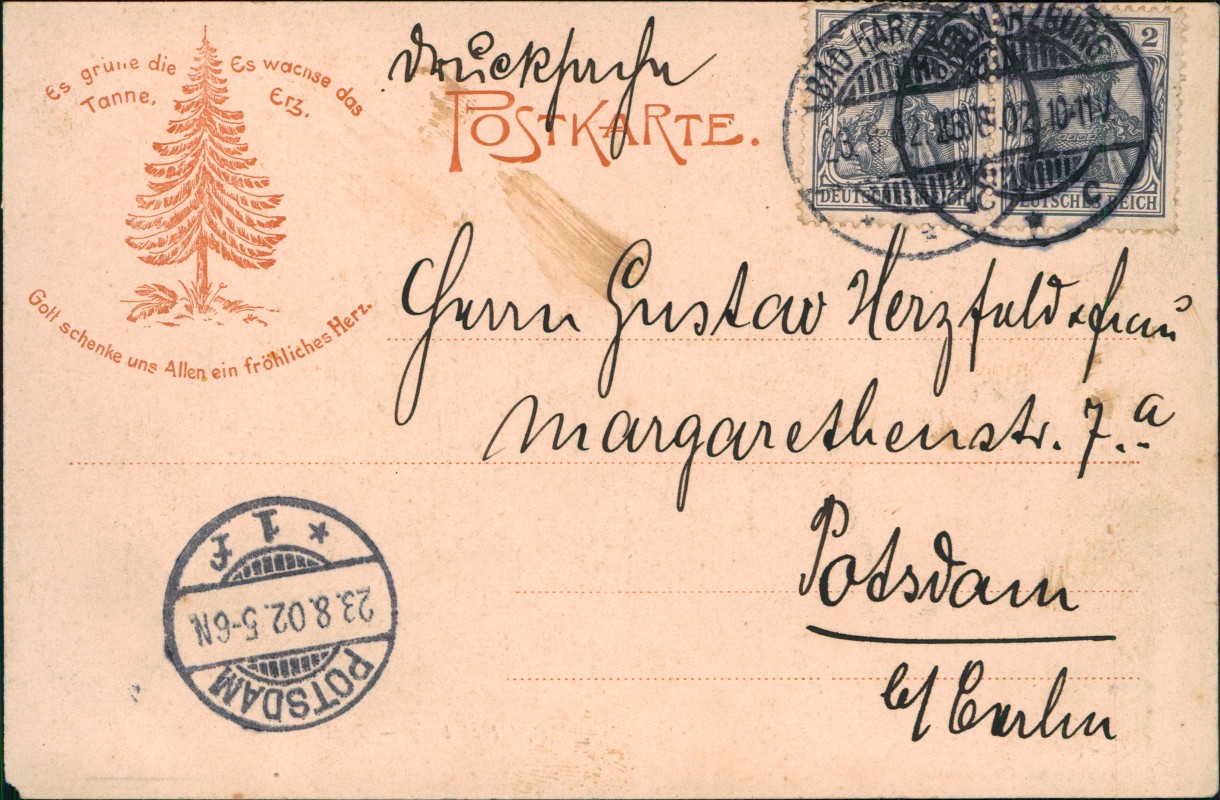 Es grüne die Tanne,
Es wachse das Erz.
Gott schenke uns Allen ein fröhliches Herz.
Drucksache
POSTKARTE.
BAD HARZBURG
HARZBURG
10-11V
* *
* c
2
DEUTSCHES REICH
DEUTSCHES REICH
Herrn Gustav Herzfeld & Frau
Margarethenstr. 7.a
Potsdam
b/ Berlin
* 1 f
23.8.02.5-6N.
POTSDAM